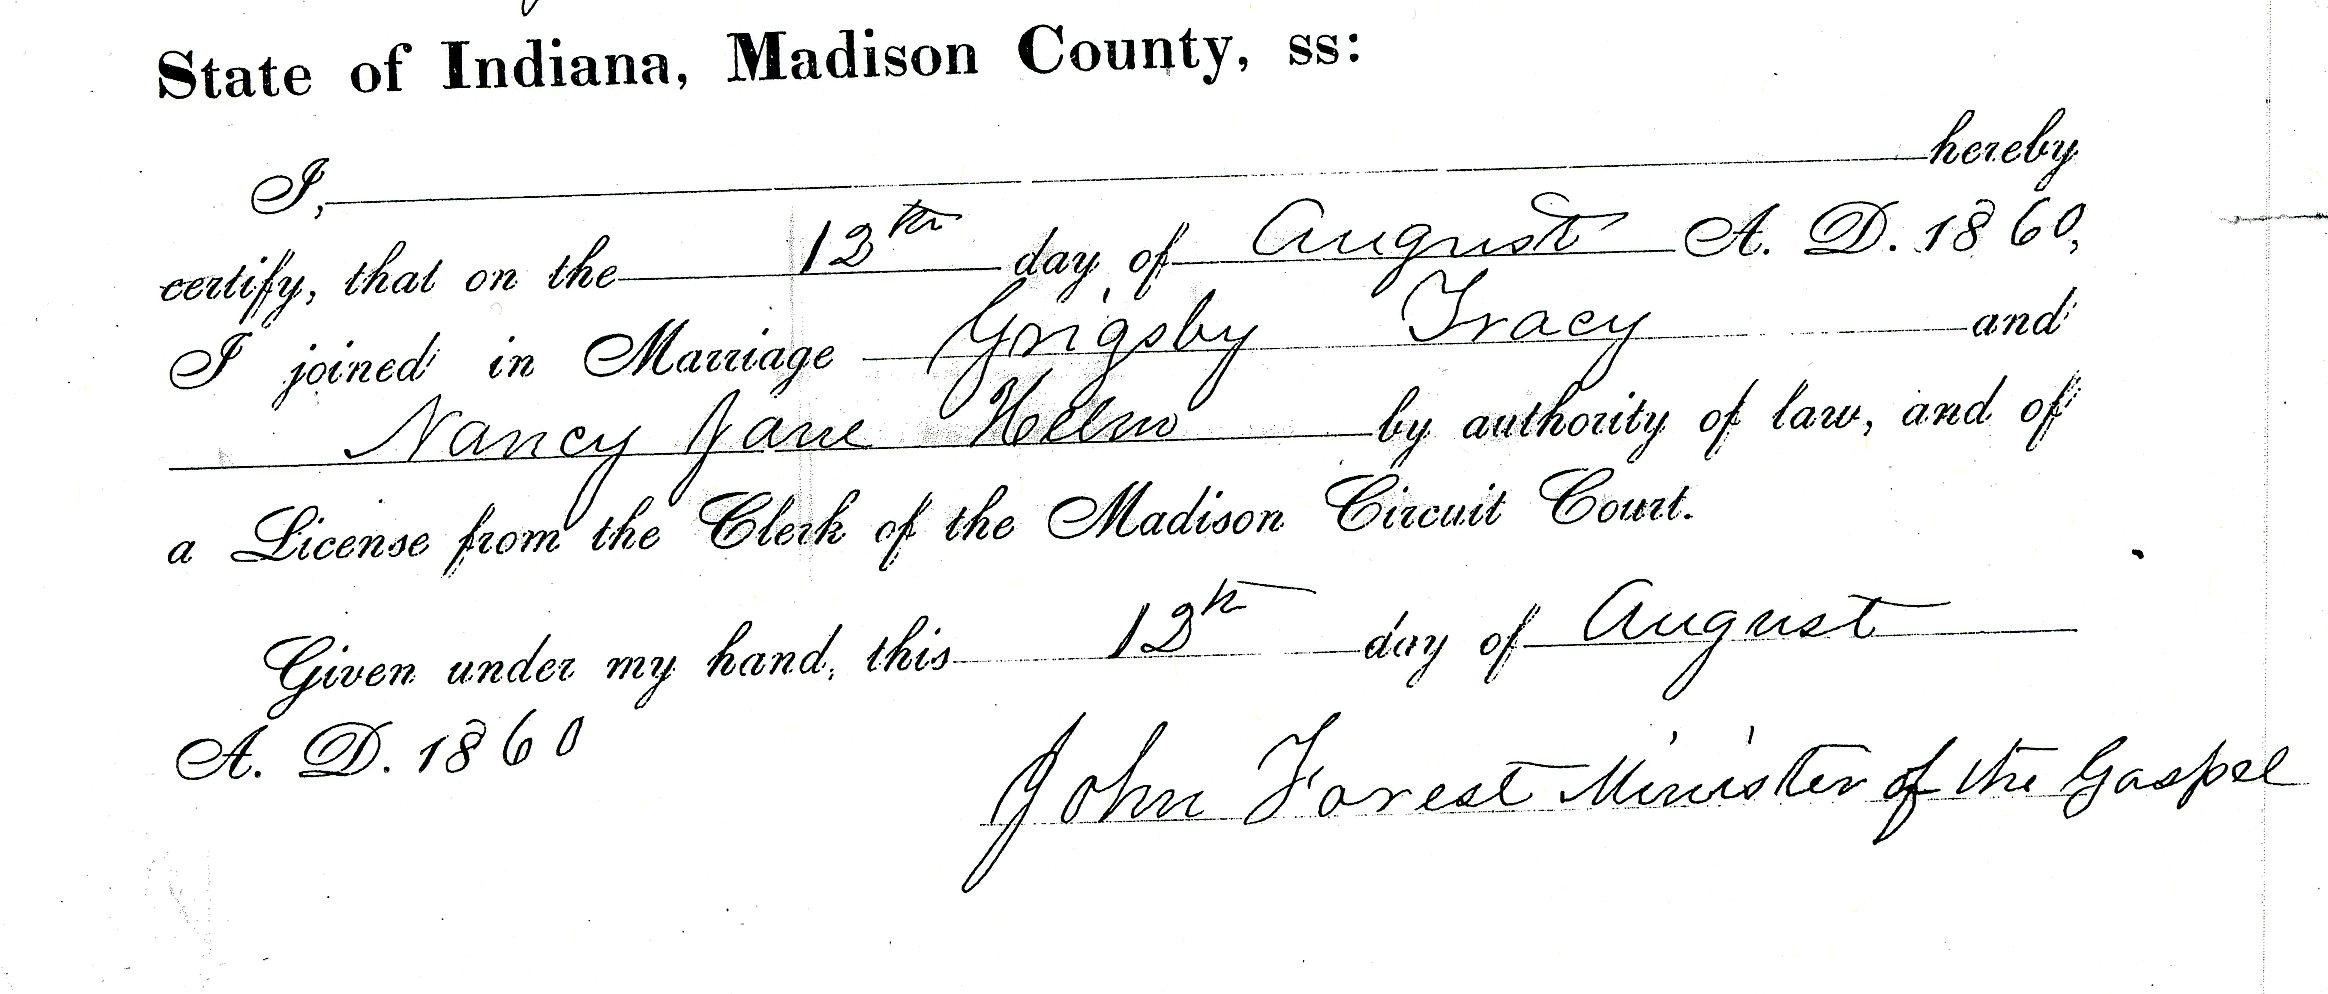 State of Indiana, Madison County, ss:
I, hereby
certify, that on the 12th day of August A. D. 1860,
I joined in Marriage Grigsby Tracy and
Nancy Jane Helm by authority of law, and of
a License from the Clerk of the Madison Circuit Court.
Given under my hand, this 12th day of August
A. D. 1860
John Forest Minister of the Gospel